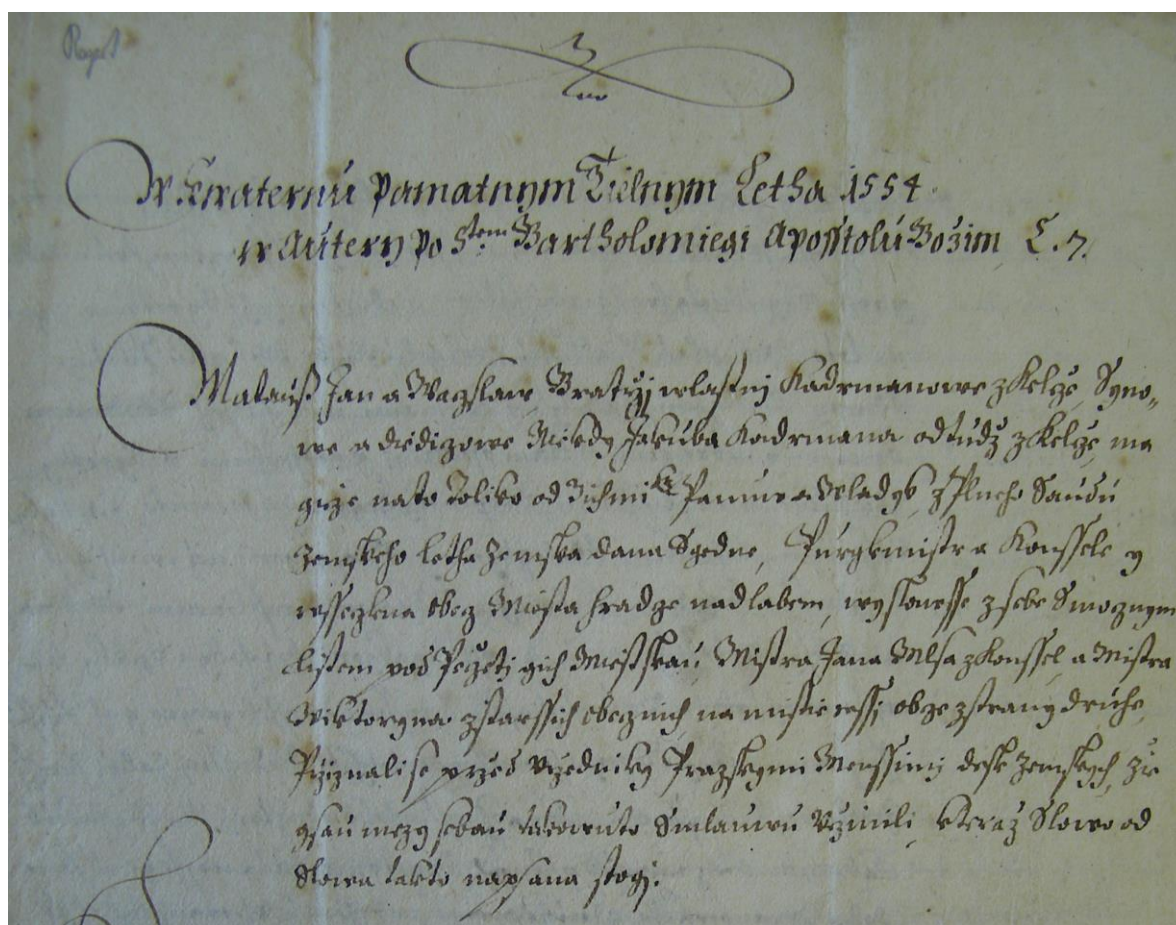 W Kwaternu pamatnym Tielnym Letha 1554.
w Autery po Stem Bartholomiegi Aposstolu Bozim L. 7.
Matauß Jan a Waczlaw, Bratrzj wlastnj Kadrmanowe z Kelcze, Syno-
we a diedizowe Niekdy Jakuba Kadrmana odtudz z Kelcze, ma
gicze na to Toliko od Panuw a Wladyk z Plneho Saudu
Zemskeho letha Zemska dana Sgedne, Purgkmistr a Konssele y
wsseczkna obecz Miesta hradcze nad labem, wyslawsse z sebe S moczným
listem pod Peczetj gich Miestskau, Mistra Jana z Konssel, a Mistra
Wiktoryna z starssich obecznich, na mistie wssi obcze z strany druhe,
Prziznali se przed Vrzedniky Prazskymi Menssimi desk Zemskych, zie
gsau mezy sebau takowuto Smlauwu Vczinili, kteraz Slowo od
Slowa takto napsana stogj.